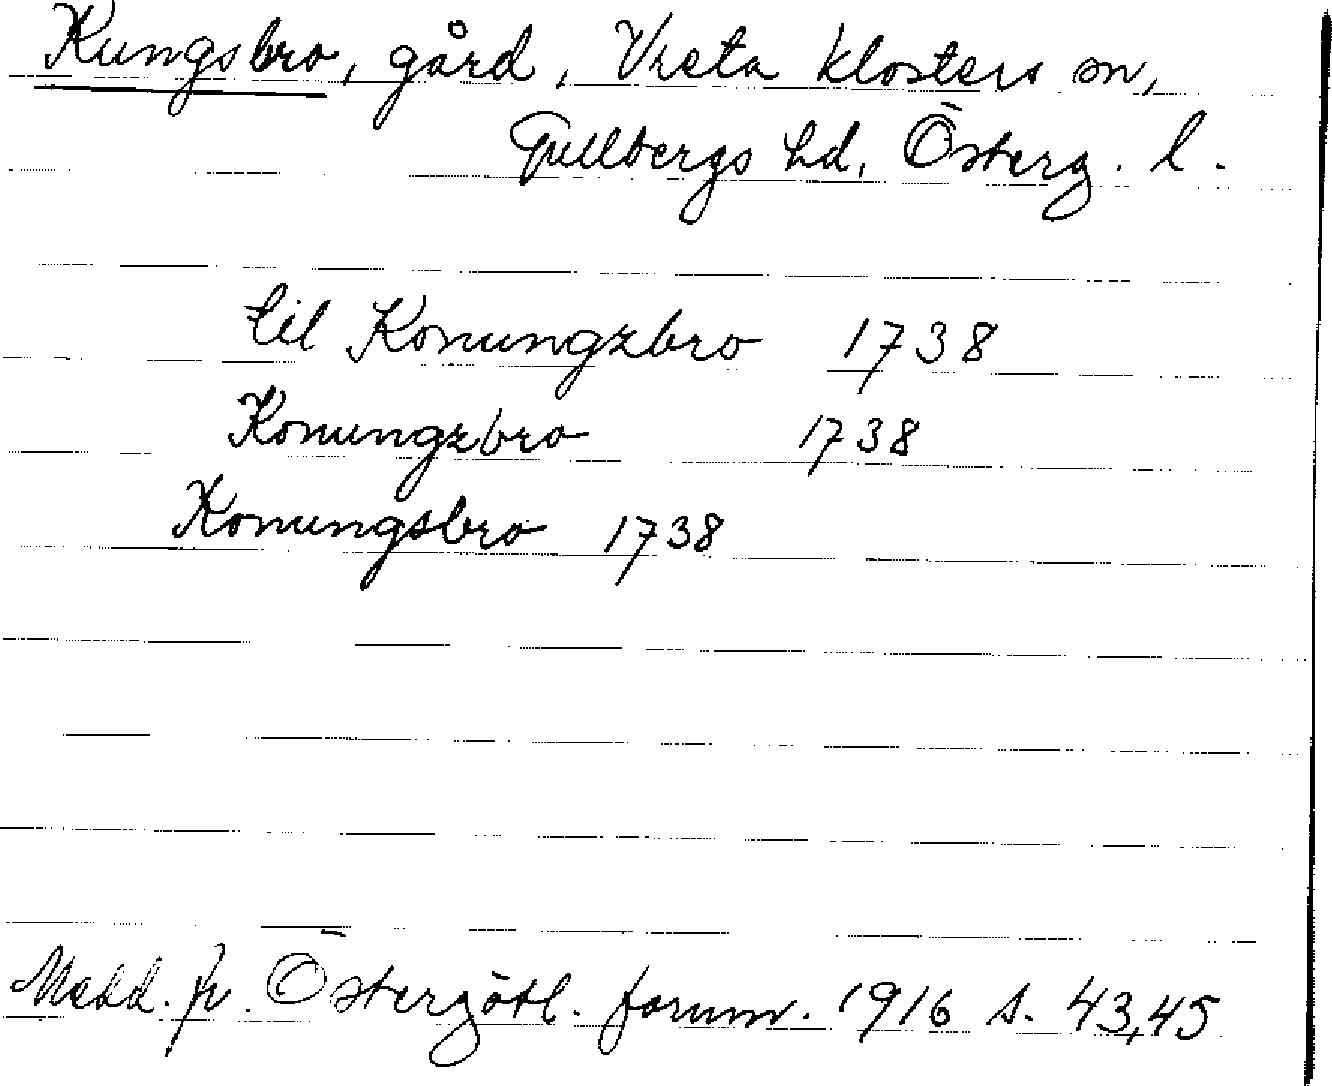 Kungsbro, gård, Vreta klosters sn,
Gullbergs hd, Österg. l.
til Konungzbro 1738
Konungzbro 1738
Konungsbro 1738
Medd. fr. Östergötl. fornm. 1916 s. 43,45